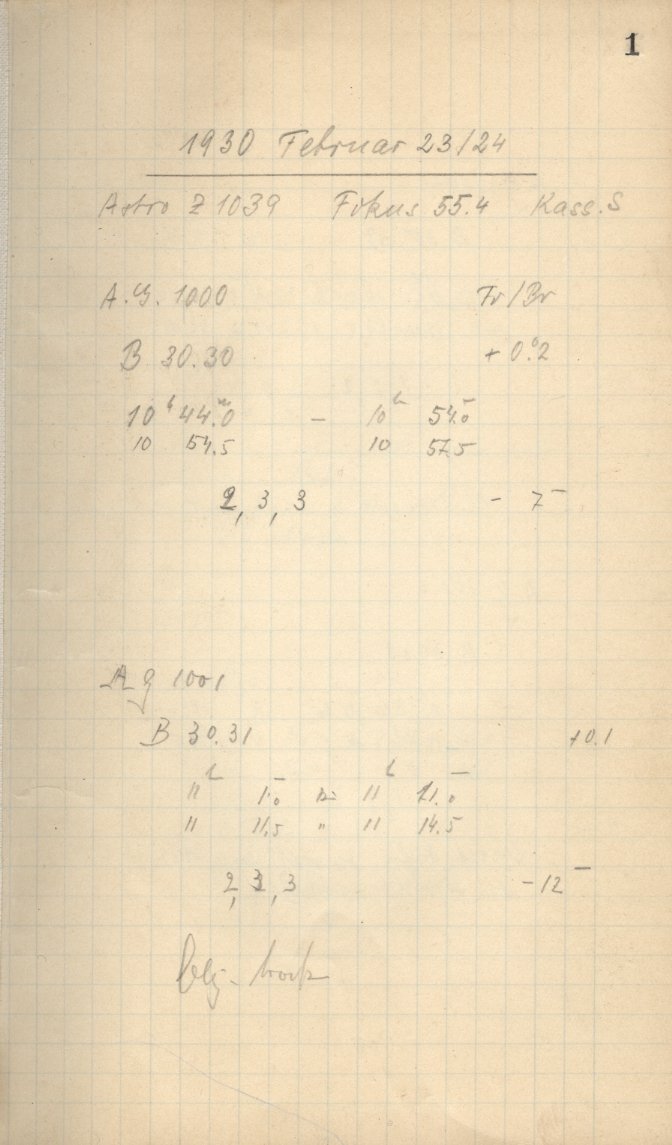 1
1930 Februar 23/24
Astro Z 1039 Fokus 55.4 Kass. S
A.G. 1000 Fr/Br
B 30.30 + 0.2
10h 44.m0 - 10h 54.m0
10 54.5 10 57.5
2, 3, 3 - 7m
A g 1001
B 30.31 +0.1
11h 1.m0 bis 11h 11.m0
11 11.5 " 11 14.5
2, 3, 3 - 12m